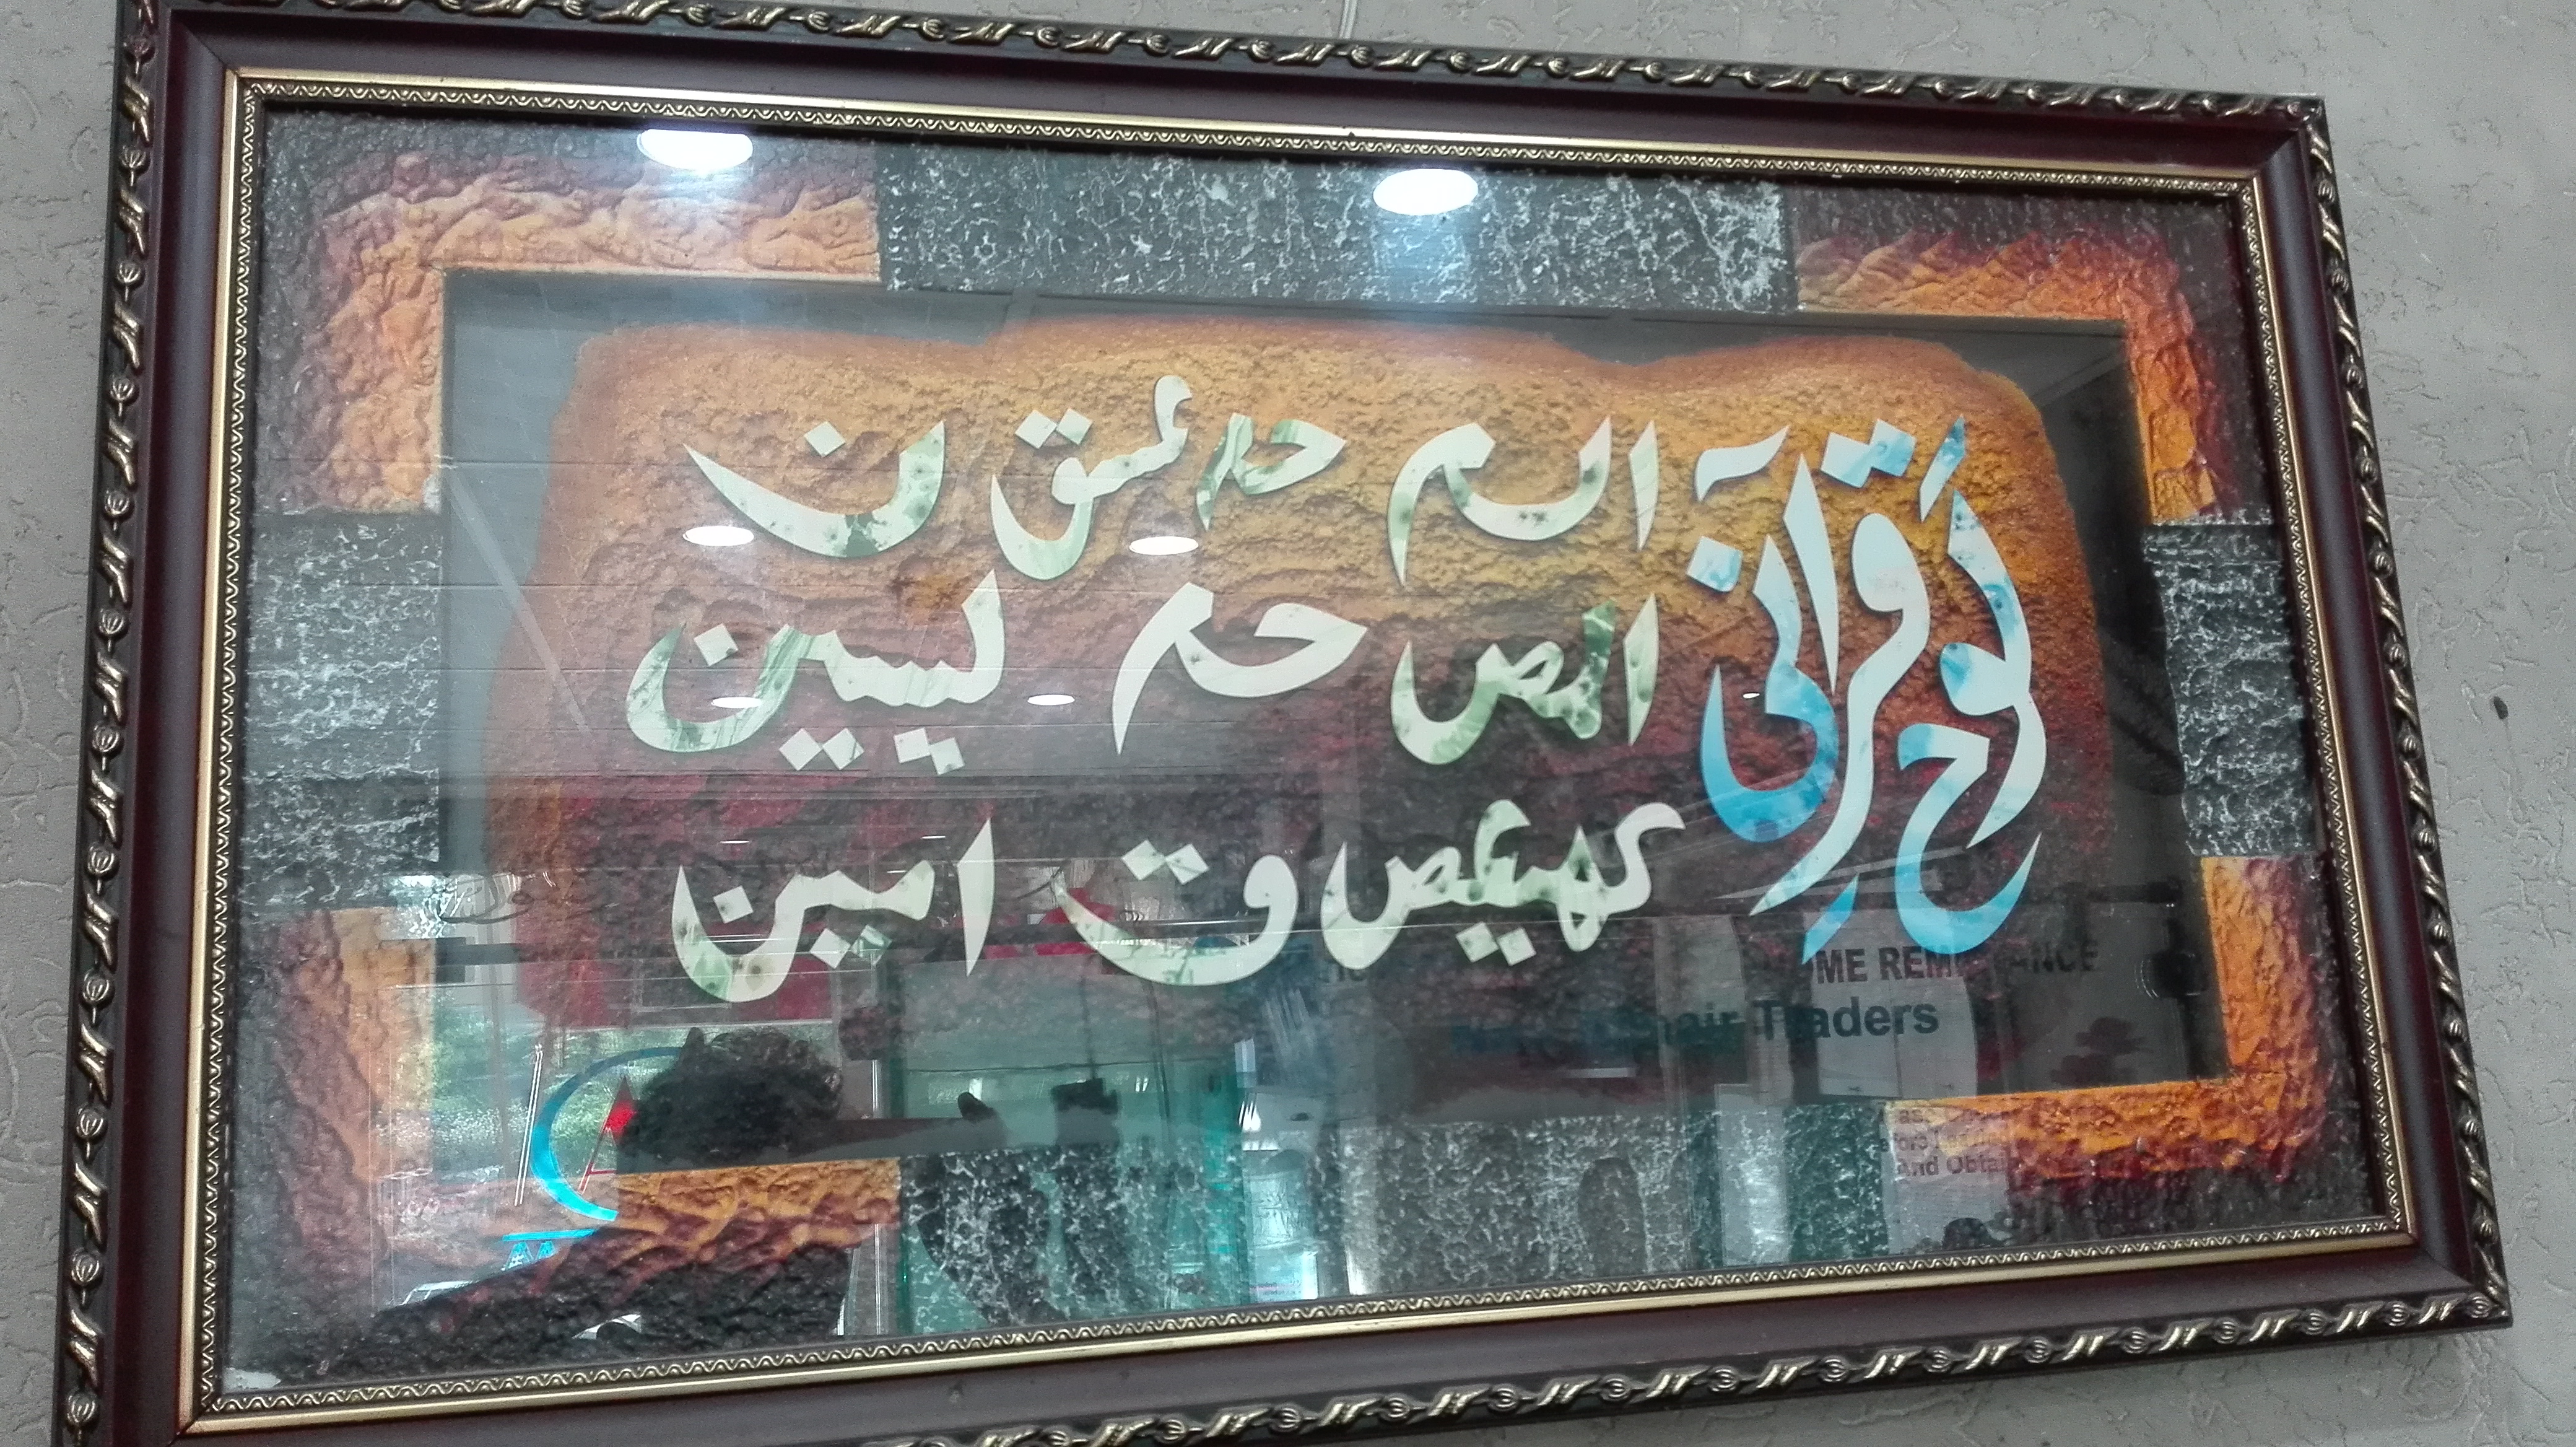 لوحِ قرآنی
الم حم عسق ن
المص حم یسین
کھیعص ق امین
ME REMITTANCE
Traders
And Obtai